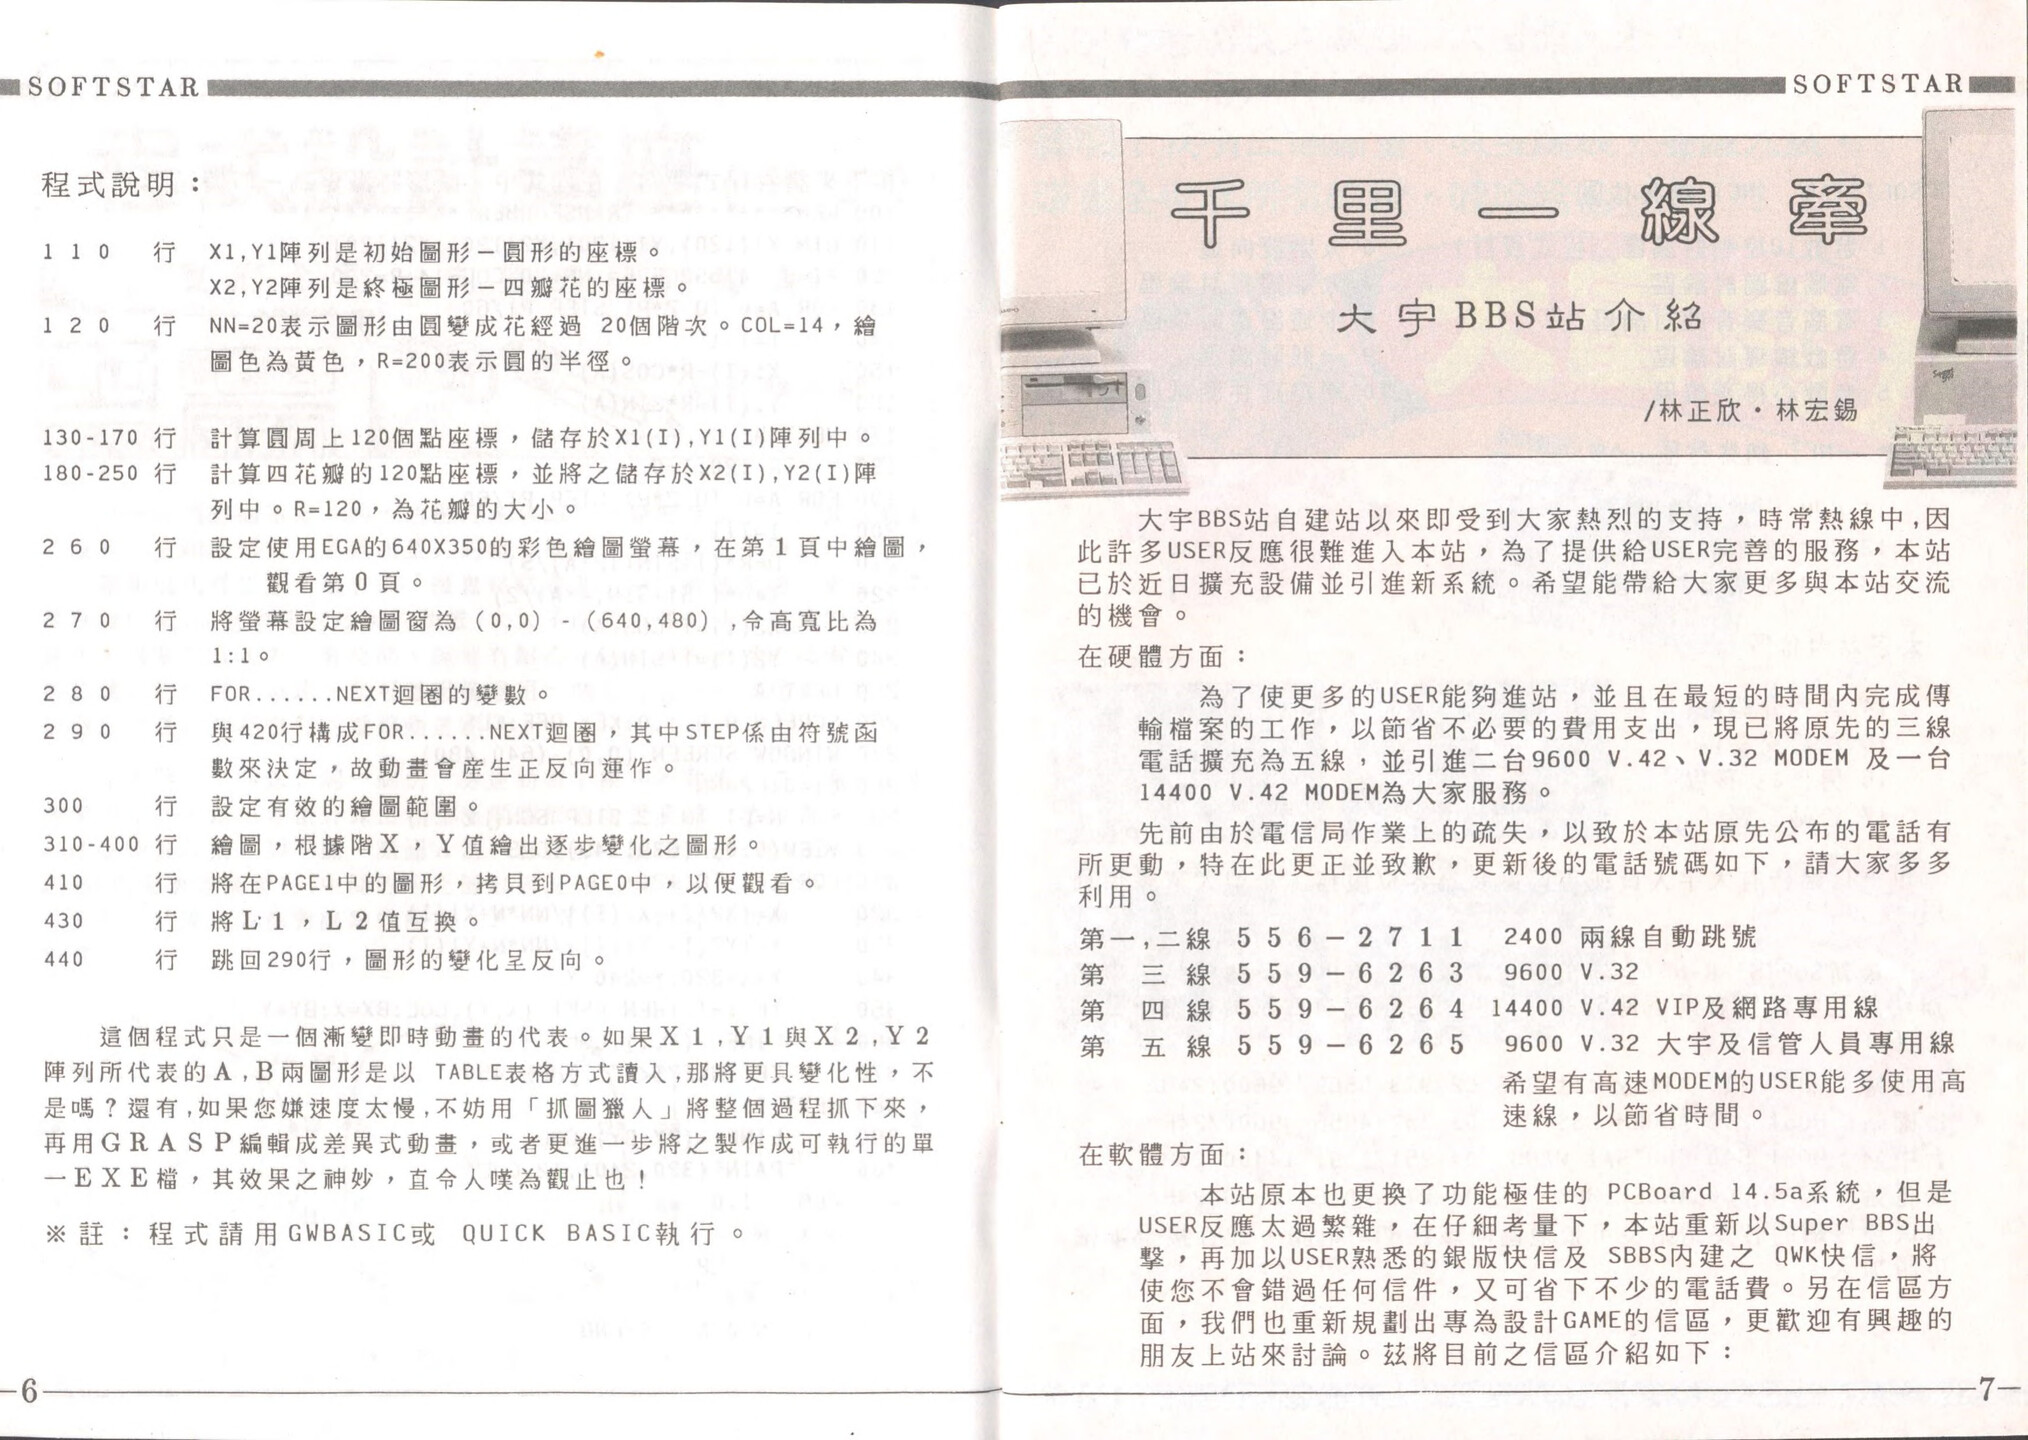 SOFTSTAR
程式說明：
110 行 X1,Y1陣列是初始圖形－圓形的座標。
X2,Y2陣列是終極圖形－四瓣花的座標。
120 行 NN=20表示圖形由圓變成花經過 20個階次。COL=14，繪
圖色為黃色，R=200表示圓的半徑。
130-170 行 計算圓周上120個點座標，儲存於X1(I),Y1(I)陣列中。
180-250 行 計算四花瓣的120點座標，並將之儲存於X2(I),Y2(I)陣
列中。R=120，為花瓣的大小。
260 行 設定使用EGA的640X350的彩色繪圖螢幕，在第1頁中繪圖，
觀看第0頁。
270 行 將螢幕設定繪圖窗為 (0,0) - (640,480) ,令高寬比為
1:1。
280 行 FOR......NEXT迴圈的變數。
290 行 與420行構成FOR......NEXT迴圈，其中STEP係由符號函
數來決定，故動畫會產生正反向運作。
300 行 設定有效的繪圖範圍。
310-400 行 繪圖，根據階X，Y值繪出逐步變化之圖形。
410 行 將在PAGE1中的圖形，拷貝到PAGE0中，以便觀看。
430 行 將L1，L2值互換。
440 行 跳回290行，圖形的變化呈反向。
這個程式只是一個漸變即時動畫的代表。如果X1,Y1與X2,Y2
陣列所代表的A,B兩圖形是以 TABLE表格方式讀入,那將更具變化性，不
是嗎？還有,如果您嫌速度太慢,不妨用「抓圖獵人」將整個過程抓下來，
再用GRASP編輯成差異式動畫，或者更進一步將之製作成可執行的單
一EXE檔，其效果之神妙，直令人嘆為觀止也！
※註：程式請用GWBASIC或 QUICK BASIC執行。
6
SOFTSTAR
千里一線牽
大宇BBS站介紹
/林正欣・林宏錫
大宇BBS站自建站以來即受到大家熱烈的支持，時常熱線中,因
此許多USER反應很難進入本站，為了提供給USER完善的服務，本站
已於近日擴充設備並引進新系統。希望能帶給大家更多與本站交流
的機會。
在硬體方面：
為了使更多的USER能夠進站，並且在最短的時間內完成傳
輸檔案的工作，以節省不必要的費用支出，現已將原先的三線
電話擴充為五線，並引進二台9600 V.42、V.32 MODEM 及一台
14400 V.42 MODEM為大家服務。
先前由於電信局作業上的疏失，以致於本站原先公布的電話有
所更動，特在此更正並致歉，更新後的電話號碼如下，請大家多多
利用。
第一,二線 556-2711 2400 兩線自動跳號
第三線 559-6263 9600 V.32
第四線 559-6264 14400 V.42 VIP及網路專用線
第五線 559-6265 9600 V.32 大宇及信管人員專用線
希望有高速MODEM的USER能多使用高
速線，以節省時間。
在軟體方面：
本站原本也更換了功能極佳的 PCBoard 14.5a系統，但是
USER反應太過繁雜，在仔細考量下，本站重新以Super BBS出
擊，再加以USER熟悉的銀版快信及 SBBS內建之 QWK快信，將
使您不會錯過任何信件，又可省下不少的電話費。另在信區方
面，我們也重新規劃出專為設計GAME的信區，更歡迎有興趣的
朋友上站來討論。茲將目前之信區介紹如下：
7